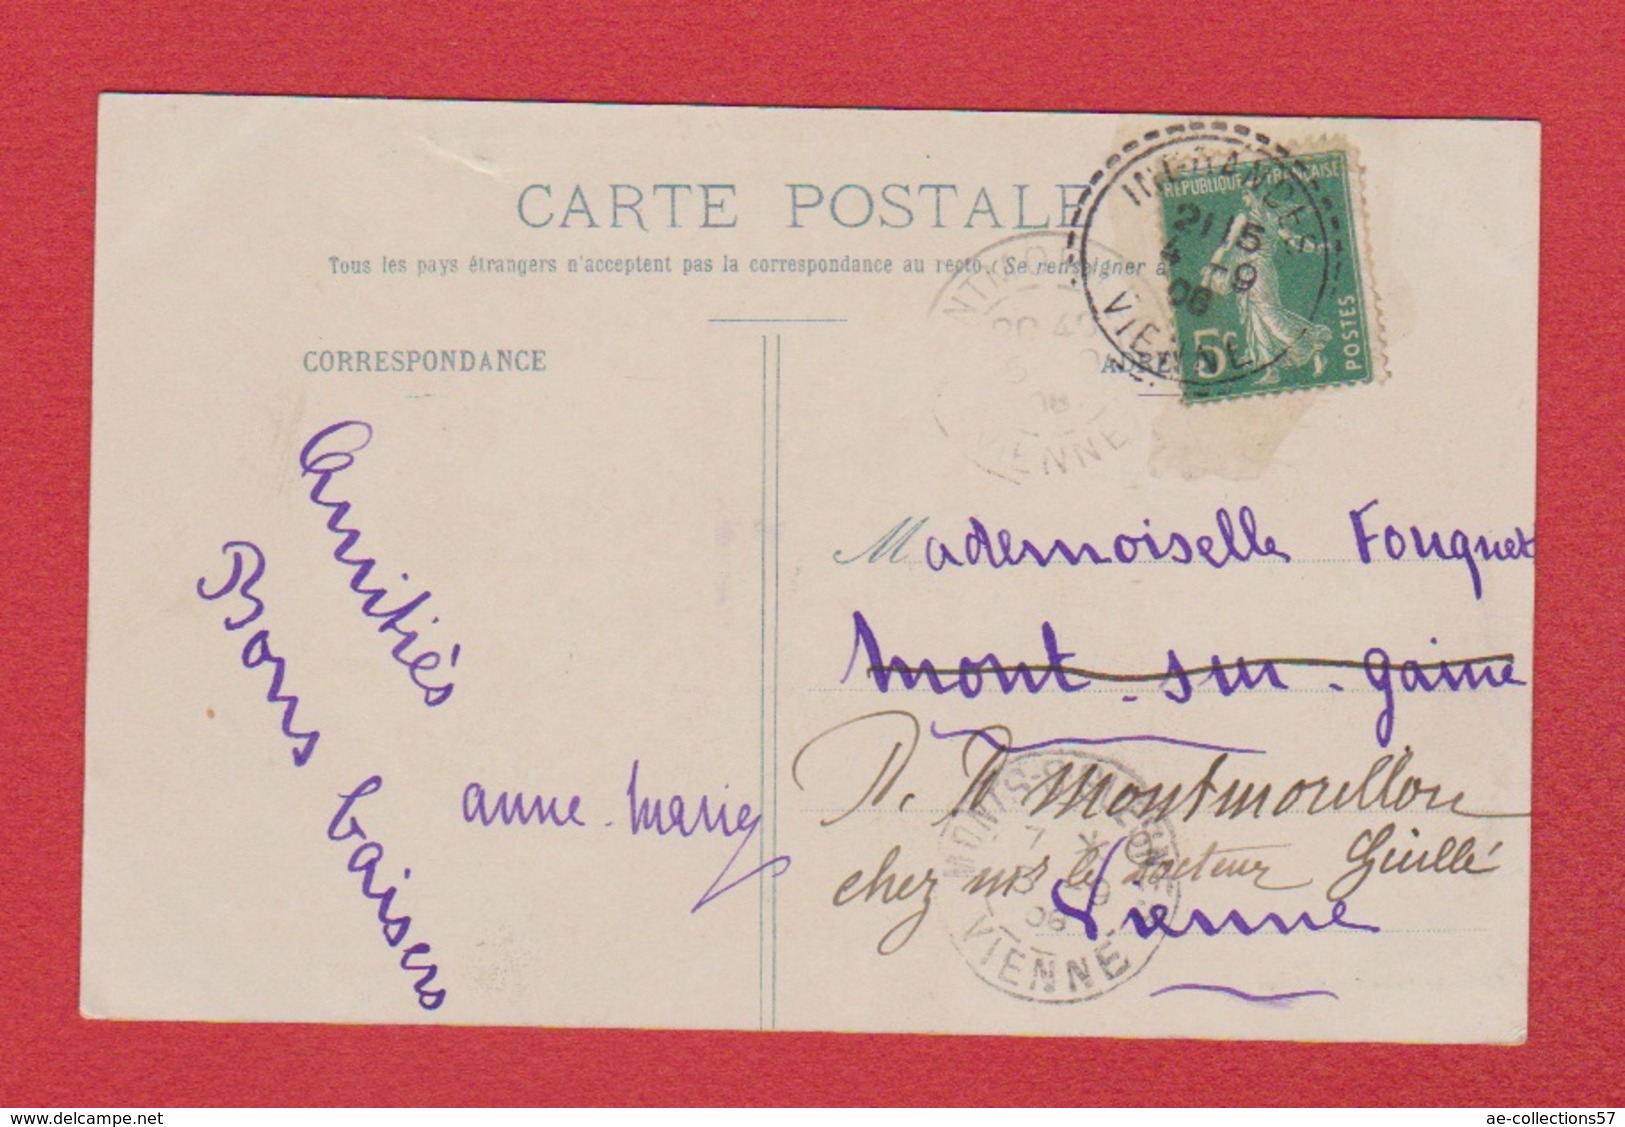 CARTE POSTALE
Tous les pays étrangers n'acceptent pas la correspondance au recto. (Se renseigner à
CORRESPONDANCE
ADRE
RÉPUBLIQUE FRANÇAISE
POSTES
5c
INGRANDES
21 15
4 9
08
VIENNE
VIENNE
08
Amitiés
Bons baisers
anne-marie
Mademoiselle Fouquet
Mont-sur-gaine
Montmorillon
chez mr le Docteur Guillé
Vienne
MONTS-S-GUESNES
7
9
08
VIENNE
www.delcampe.net
ae-collections57